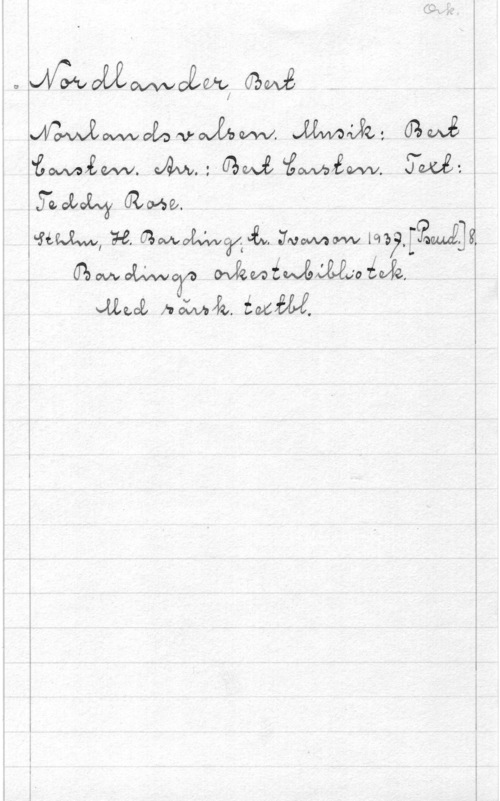 Ork.
Nordlander, Bert
Norrlandsvalsen. Musik: Bert
Carsten. Arr.: Bert Carsten. Text:
Teddy Rose.
Sthlm, H. Barding, tr. Ivarson 1937. [Pseud.] 8.
Bardings orkesterbibliotek.
Med särsk. textbl.